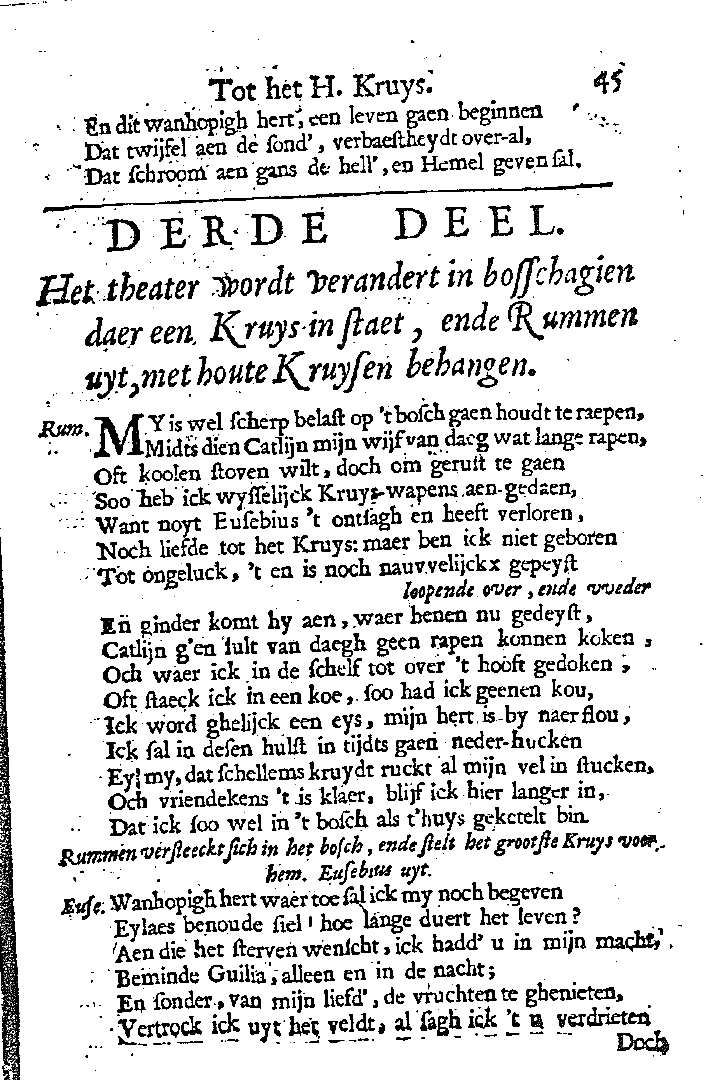 Tot het H. Kruys. 45
En dit wanhopigh hert, een leven gaen beginnen
Dat twijfel aen de sond', verbaestheydt over-al,
Dat schroom aen gans de hell', en Hemel geven sal.
DERDE DEEL.
Het theater wordt verandert in bosschagien
daer een Kruys in staet, ende Rummen
uyt, met houte Kruysen behangen.
Rum. MY is wel scherp belast op 't bosch gaen houdt te raepen,
Midts dien Catlijn mijn wijf van daeg wat lange rapen,
Oft koolen stoven wilt, doch om gerust te gaen
Soo heb ick wysselijck Kruys-wapens aen-gedaen,
Want noyt Eusebius 't ontsagh en heeft verloren,
Noch liefde tot het Kruys: maer ben ick niet geboren
Tot ongeluck, 't en is noch nauvvelijckx gepeyst
loopende over, ende vveder
Eñ ginder komt hy aen, waer henen nu gedeyst,
Catlijn g'en sult van daegh geen rapen konnen koken,
Och waer ick in de schelf tot over 't hooft gedoken;
Oft staeck ick in een koe, soo had ick geenen kou,
Ick word ghelijck een eys, mijn hert is by naer flou,
Ick sal in desen hulst in tijdts gaen neder-hucken
Ey! my, dat schellems kruydt ruckt al mijn vel in stucken,
Och vriendekens 't is klaer, blijf ick hier langer in,
Dat ick soo wel in 't bosch als t'huys geketelt bin.
Rummen versteeckt sich in het bosch, ende stelt het grootste Kruys voor
hem. Eusebius uyt.
Euse. Wanhopigh hert waer toe sal ick my noch begeven
Eylaes benoude siel! hoe lange duert het leven?
Aen die het sterven wenscht, ick hadd' u in mijn macht,
Beminde Guilia, alleen en in de nacht;
En sonder, van mijn liefd', de vruchten te ghenieten,
Vertrock ick uyt het veldt, al sagh ick 't u verdrieten
Doch